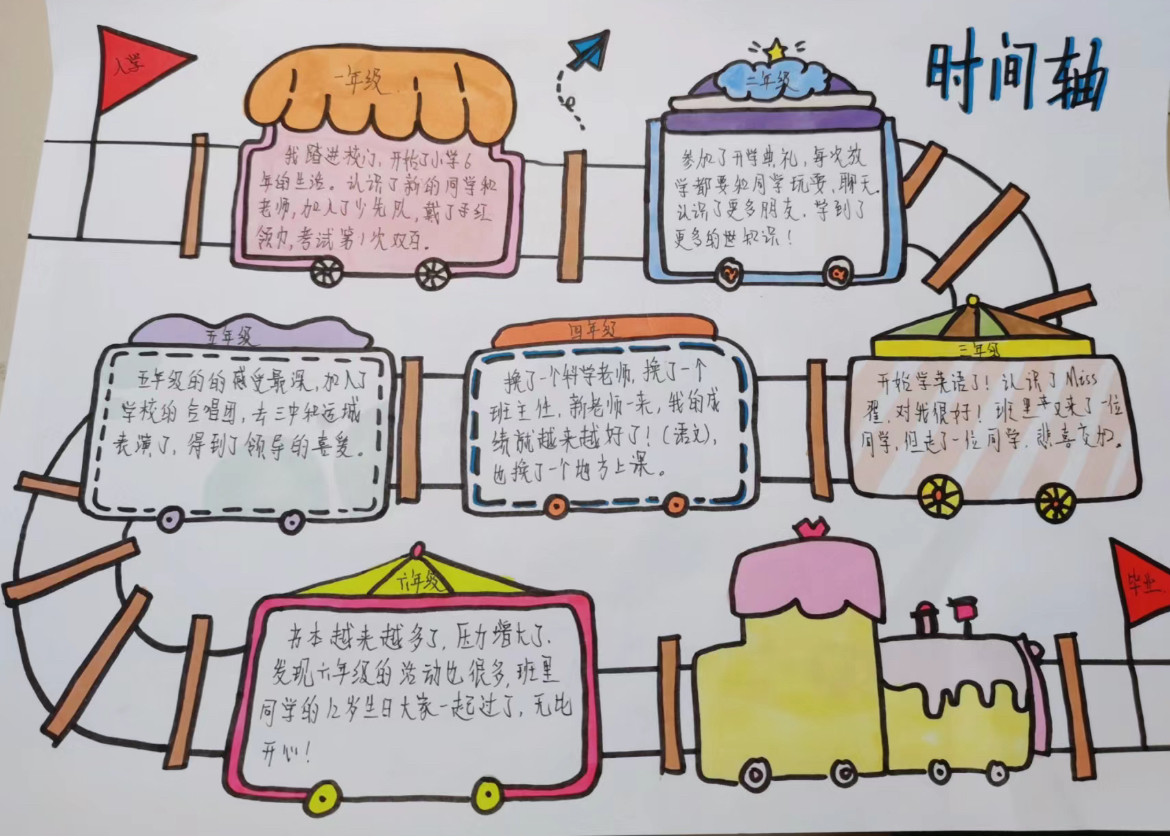 时间轴
入学
一年级
我踏进校门，开始了小学6
年的生活。认识了新的同学和
老师，加入了少先队，戴了手红
领巾，考试第1次双百。
二年级
参加了开学典礼，每次放
学都要和同学玩耍、聊天。
认识了更多朋友，学到了
更多的世知识！
三年级
开始学英语了！认识了Miss
翟，对我很好！班里又来了一位
同学，但走了一位同学，悲喜交加。
四年级
换了一个科学老师，换了一个
班主任，新老师一来，我的成
绩就越来越好了！(语文)，
也换了一个地方上课。
五年级
五年级的的感受最深，加入了
学校的合唱团，去三中和运城
表演了，得到了领导的喜爱。
六年级
书本越来越多了，压力增大了.
发现六年级的活动也很多，班里
同学的12岁生日大家一起过了，无比
开心！
毕业